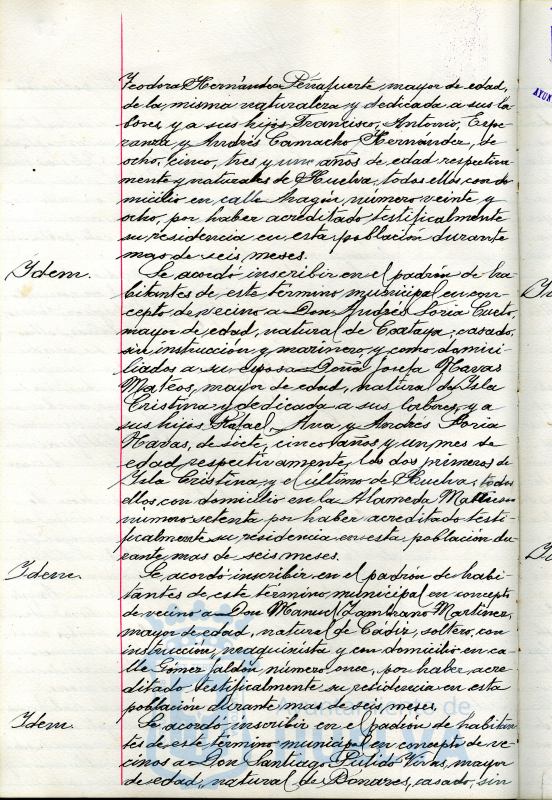 Teodora Hernández Peñafuerte, mayor de edad,
de la misma naturaleza y dedicada a sus la-
bores y a sus hijos Francisco, Antonio, Espe-
ranza y Andrés Camacho Hernández, de
ocho, cinco, tres y un años de edad respectiva-
mente y naturales de Huelva, todos ellos, con do-
micilio en calle número veinte y
ocho, por haber acreditado testificalmente
su residencia en esta población durante
mas de seis meses.
Idem. Se acordó inscribir en el padrón de ha-
bitantes de este término municipal en con-
cepto de vecino a Don Andrés Soria Cueto,
mayor de edad, natural de casado,
sin instrucción y marinero, y como domici-
liados a su esposa Doña Josefa Navas
Mateos, mayor de edad, natural de Isla
Cristina y dedicada a sus labores, y a
sus hijos Rafael, Ana y Andrés Soria
Navas, de siete, cinco años y un mes de
edad respectivamente, los dos primeros de
Isla Cristina y el último de Huelva, todos
ellos, con domicilio en la Alameda
número setenta por haber acreditado testi-
ficalmente su residencia en esta población du-
rante mas de seis meses.
Idem. Se acordó inscribir en el padrón de habi-
tantes de este término municipal en concepto
de vecino a Don Manuel Zambrano Martínez,
mayor de edad, natural de Cádiz, soltero, con
instrucción, maquinista y con domicilio en ca-
lle Gómez Jaldón número once, por haber acre-
ditado testificalmente su residencia en esta
población durante mas de seis meses.
Idem. Se acordó inscribir en el padrón de habitan-
tes de este término municipal en concepto de ve-
cinos a Don Santiago Pulido Vivas, mayor
de edad, natural de Bonares, casado, sin